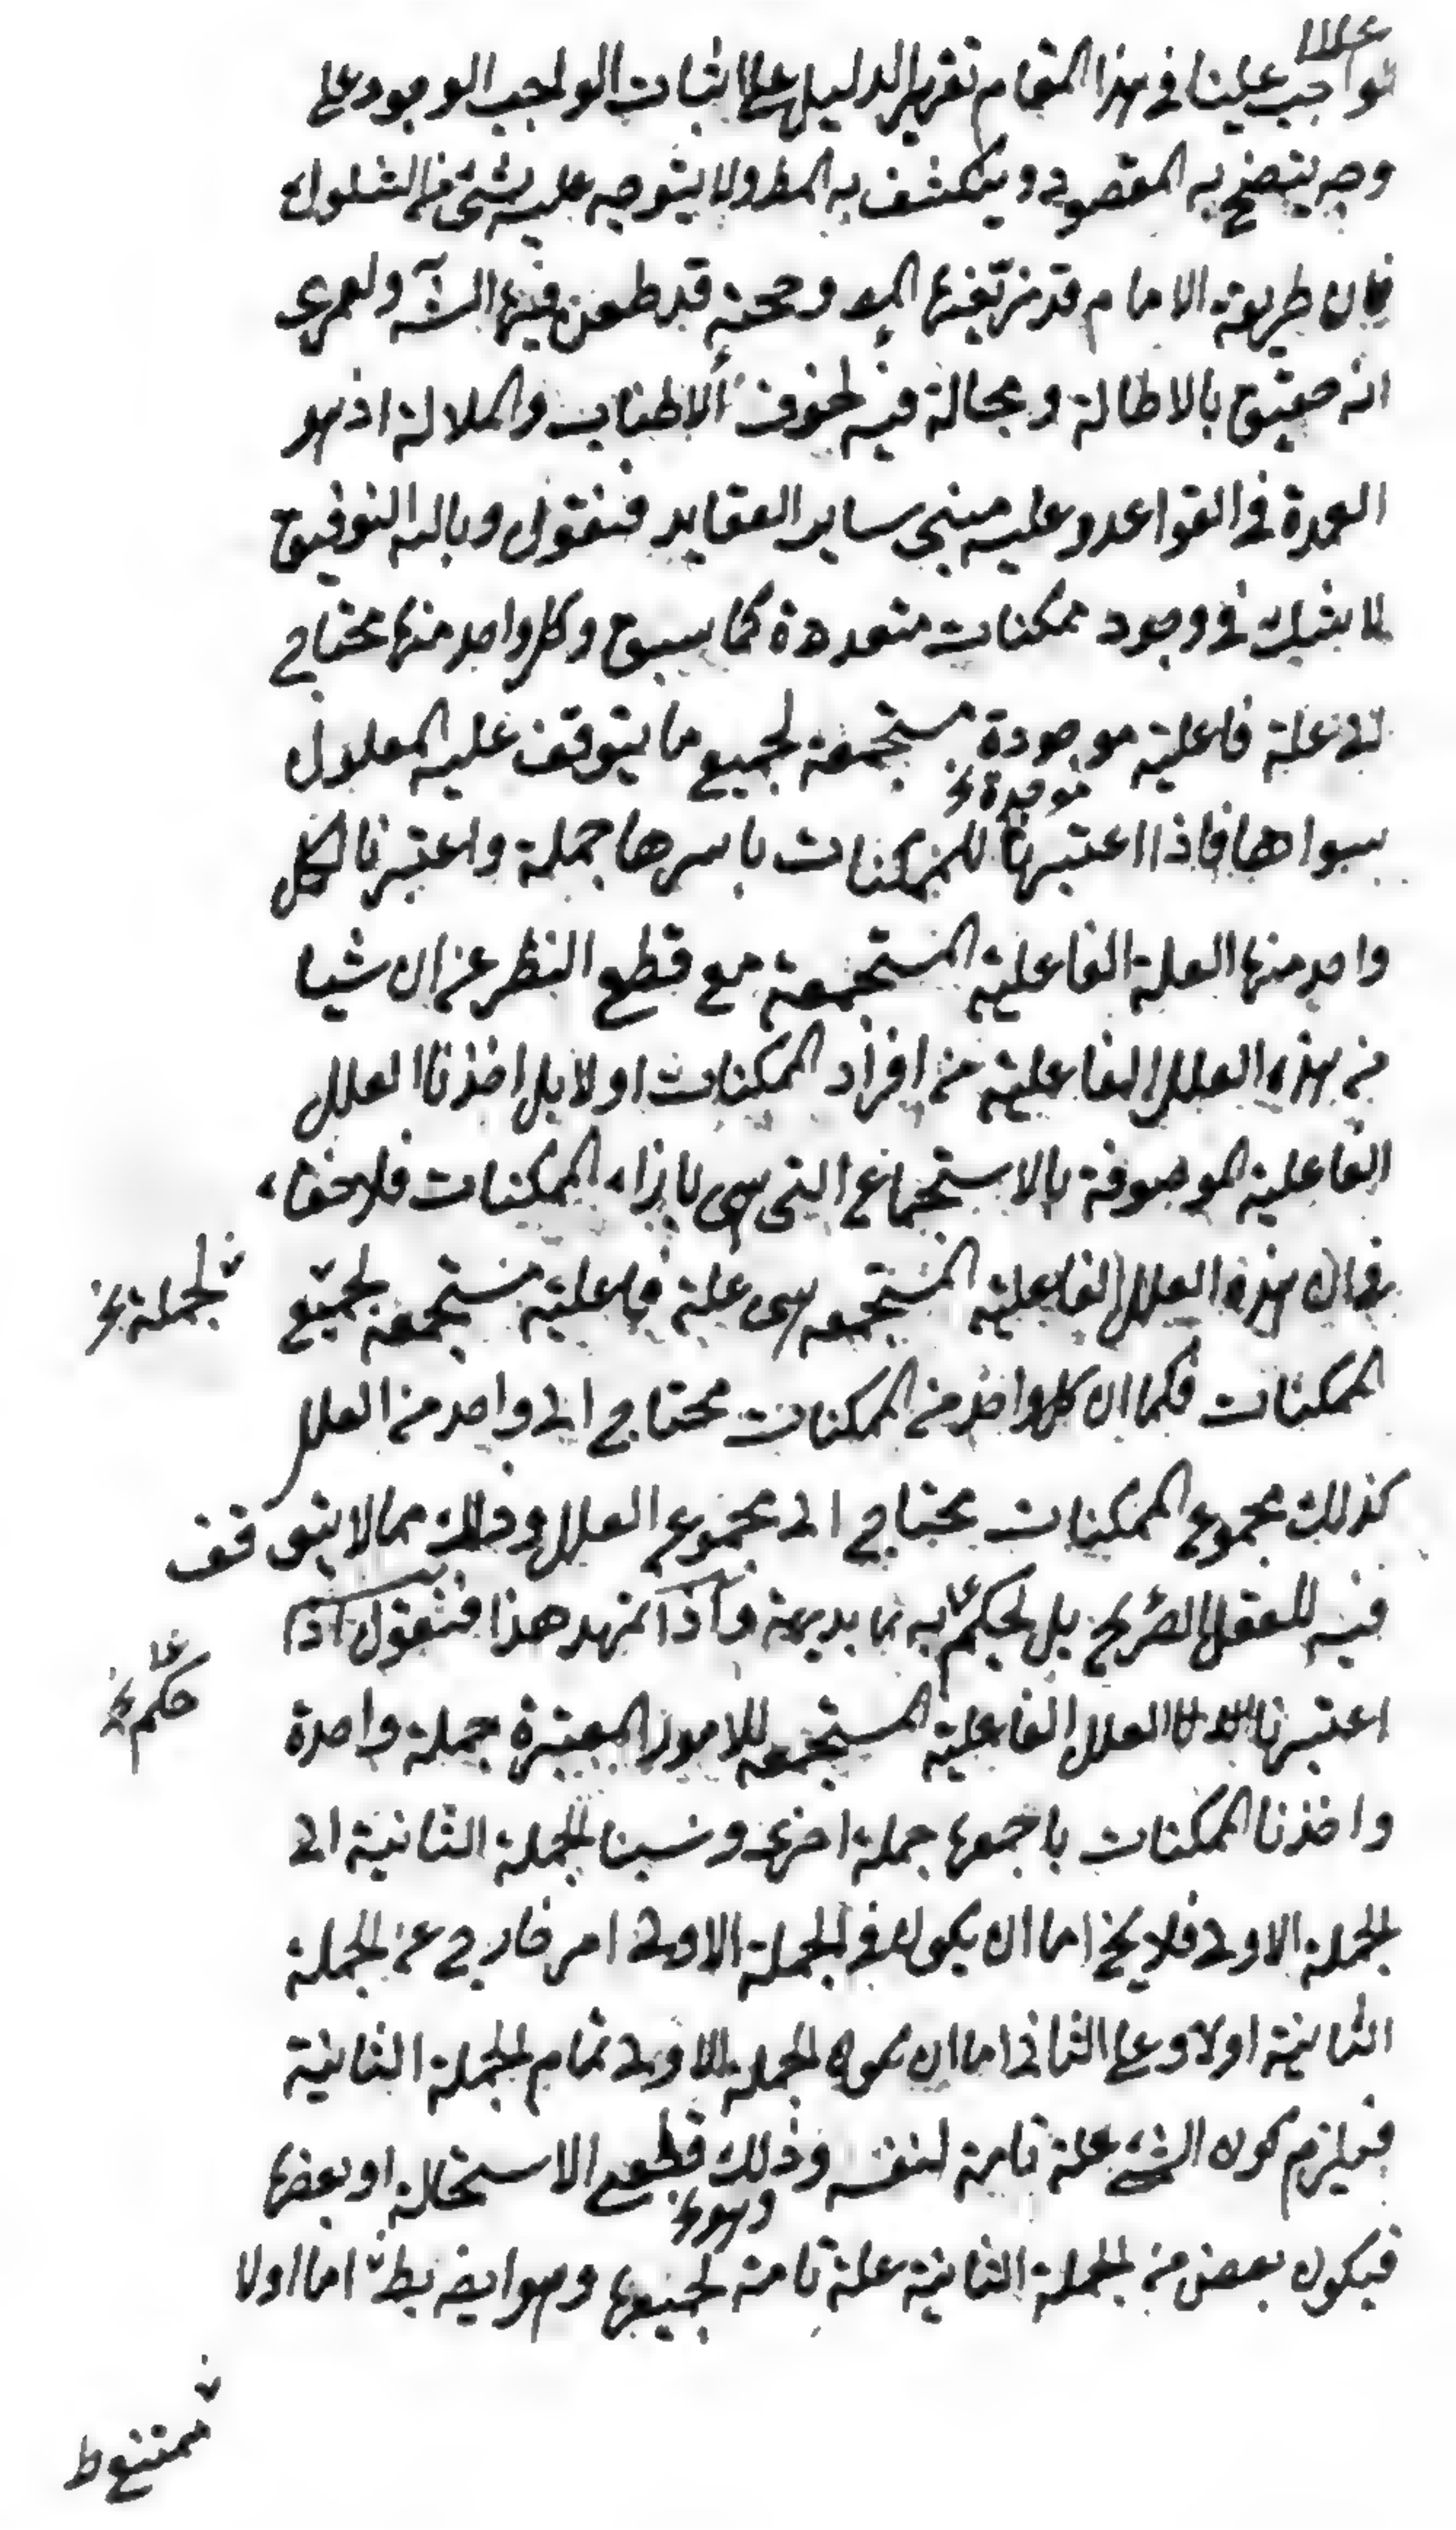 علينا
فواجب علينا في هذا المقام تقرير الدليل على اثبات الواجب الوجود على
وجه يتضح به المقصود وينكشف به المط ولا يتوجه عليه شئ من الشكوك
فان طريقة الامام قد زيّفها المص وحجته قد طعن فيها الشه ولعمري
انه حقيق بالاطالة ومحاله فيه لخوف الاطناب والملالة اذ هو
العمدة في القواعد وعليه مبنى ساير العقايد فنقول وبالله التوفيق
لا شك في وجود ممكنات متعددة كما سبق وكل واحد منها محتاج
الى علة فاعلية موجودة مستجمعة لجميع ما يتوقف عليه المعلول
موجدة خ
سواها فاذا اعتبرنا الممكنات باسرها جملة واعتبرنا لكل
واحد منها العلة الفاعلية المستجمعة مع قطع النظر عن ان شيا
من هذه العلل الفاعلية من افراد الممكنات اولا بل اخذنا العلل
الفاعلية الموصوفة بالاستجماع التي هي بازاء الممكنات فلا خفاء
في ان هذه العلل الفاعلية المستجمعه هى علة فاعلية مستجمعه لجميع
لجملة خ
الممكنات فكما ان كل واحد من الممكنات محتاج الى واحد من العلل
كذلك مجموع الممكنات يحتاج الى مجموع العلل وذلك مما لا يتوقف
فيه للعقل الصريح بل يحكم به بديهة واذا تمهد هذا فنقول اذا
حكم خ
اعتبرنا العلل الفاعلية المستجمعه للامور المعتبرة جملة واحدة
واخذنا الممكنات باجمعها جملة اخرى ونسبنا الجملة الثانية الى
الجملة الاولى فلا يخ اما ان يكون في الجملة الاولى امر خارج عن الجملة
الثانية اولا وعلى الثانى اما ان يكون الجملة الاولى تمام الجملة الثانية
فيلزم كون الشئ علة تامة لنفسه وذلك قطعى الاستحالة او بعضها
وهو خ
فيكون بعض من الجملة الثانية علة تامة لجميعها وهو ايض بط اما اولا
ممتنع ط